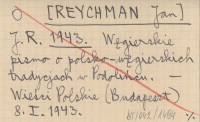 [REYCHMAN Jan]
J.R. 1943. Węgierskie
pismo o polsko-węgierskich
tradycjach w Podolińcu. —
Wieści Polskie (Budapeszt)
8. I. 1943.